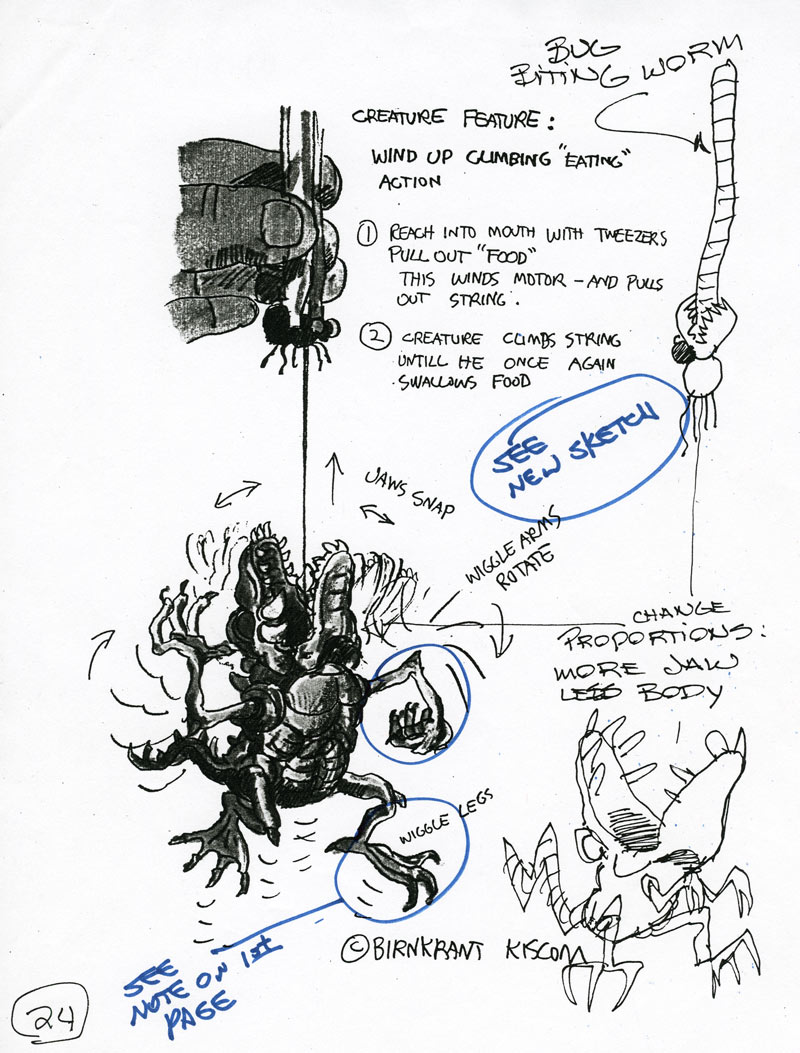 BUG
BITING WORM
CREATURE FEATURE:
WIND UP CLIMBING "EATING"
ACTION
① REACH INTO MOUTH WITH TWEEZERS
PULL OUT "FOOD"
THIS WINDS MOTOR – AND PULLS
OUT STRING.
② CREATURE CLIMBS STRING
UNTILL HE ONCE AGAIN
SWALLOWS FOOD
SEE
NEW SKETCH
JAWS SNAP
WIGGLE ARMS
ROTATE
CHANGE
PROPORTIONS:
MORE JAW
LESS BODY
WIGGLE LEGS
© BIRNKRANT KISCOM
SEE
NOTE ON 1st
PAGE
24